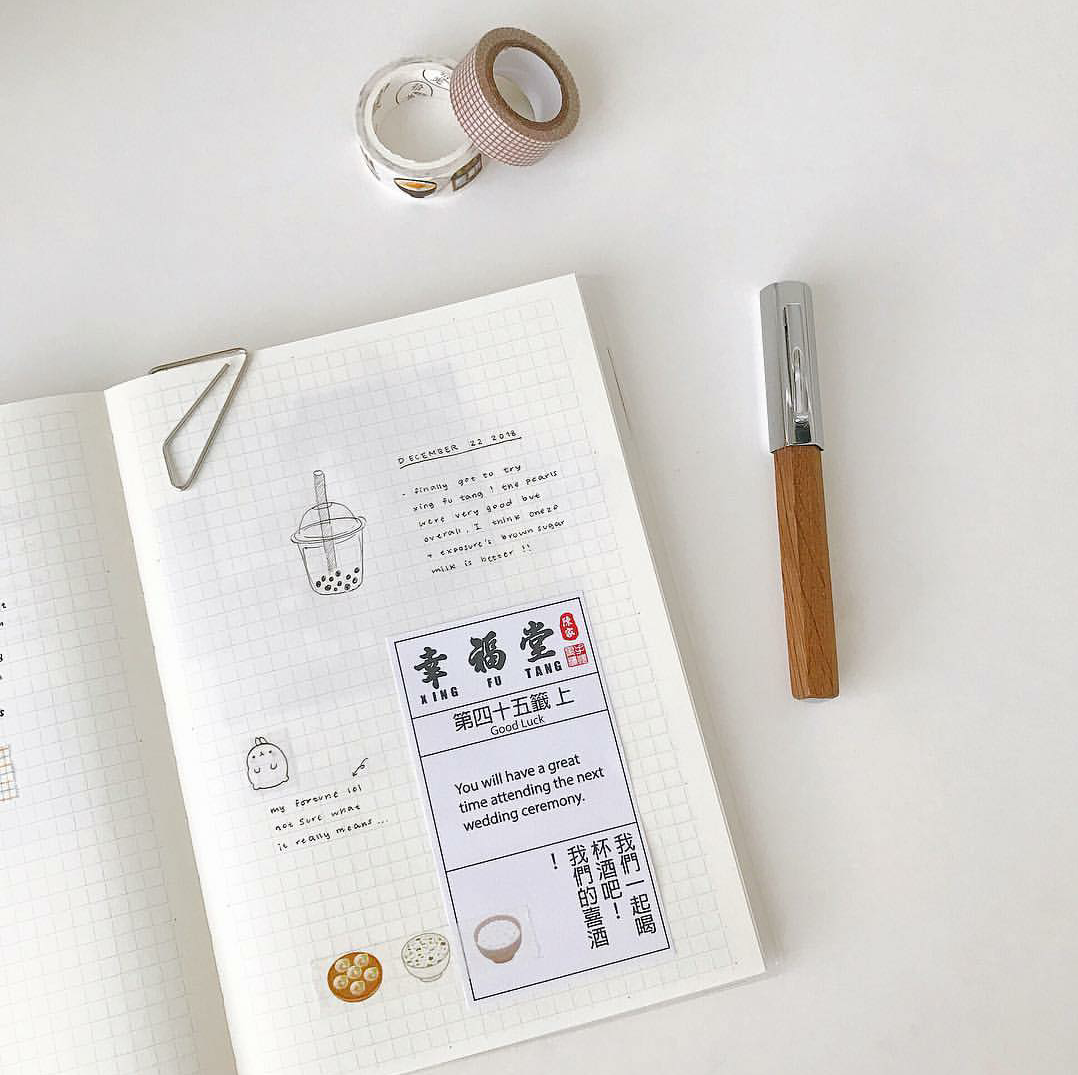 DECEMBER 22 2018
- finally got to try
xing fu tang! the pearls
were very good but
overall, I think onezo
+ exposure's brown sugar
milk is better !!
幸福堂
陳家
XING FU TANG
第四十五籤 上
Good Luck
You will have a great
time attending the next
wedding ceremony.
我們一起喝
杯酒吧！
我們的喜酒
！
my fortune lol
not sure what
it really means...